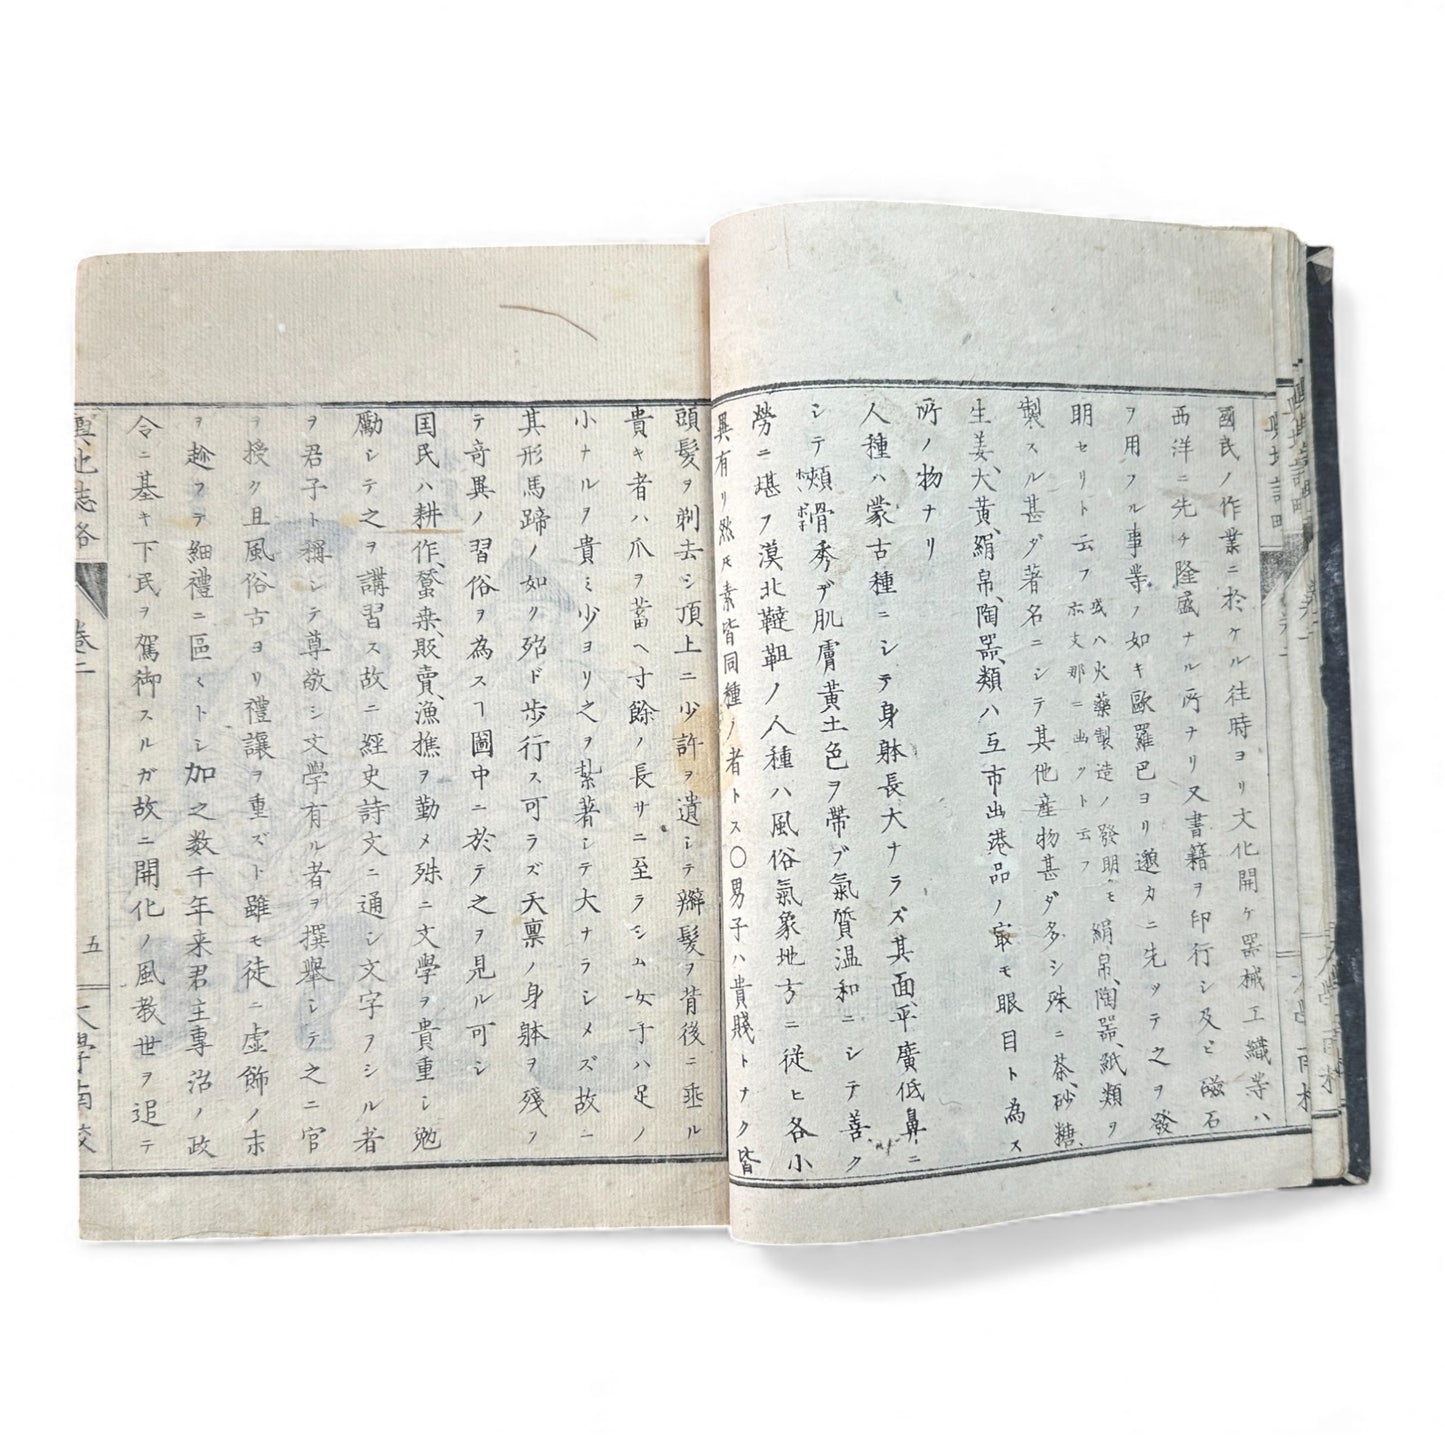 國民ノ作業ニ於ケル往時ヨリ文化開ケ器械工織等ハ
西洋ニ先チ隆盛ナル所ナリ又書籍ヲ印行シ及ビ磁石
ヲ用フル事等ノ如キ歐羅巴ヨリ邈カニ先ツテ之ヲ發
明セリト云フ
或ハ火藥製造ノ發明モ
亦支那ニ出ツト云フ
絹帛、陶器、紙類ヲ
製スル甚ダ著名ニシテ其他産物甚ダ多シ殊ニ茶、砂糖、
生姜、大黄、絹帛、陶器、類ハ互市出港品ノ㝡モ眼目ト為ス
所ノ物ナリ
人種ハ蒙古種ニシテ身躰長大ナラズ其面平廣低鼻ニ
シテ頰骨秀デ肌膚黃土色ヲ帶ブ氣質溫和ニシテ善ク
勞ニ堪フ漠北韃靼ノ人種ハ風俗氣象地方ニ從ヒ各小
異有リ然𪜈素皆同種ノ者トス〇男子ハ貴賤トナク皆
頭髮ヲ剃去シ頂上ニ少許ヲ遺シテ辮髮ヲ背後ニ垂ル
貴キ者ハ爪ヲ蓄ヘ寸餘ノ長サニ至ラシム女子ハ足ノ
小ナルヲ貴ミ少ヨリ之ヲ紮著シテ大ナラシメズ故ニ
其形馬蹄ノ如ク殆ド歩行ス可ラズ天禀ノ身躰ヲ殘フ
テ竒異ノ習俗ヲ為スヿ圖中ニ於テ之ヲ見ル可シ
国民ハ耕作、蠶桒、販賣、漁樵ヲ勤メ殊ニ文學ヲ貴重シ勉
勵シテ之ヲ講習ス故ニ經史詩文ニ通シ文字ヲシル者
ヲ君子ト稱シテ尊敬シ文學有ル者ヲ撰舉シテ之ニ官
ヲ授ク且風俗古ヨリ禮讓ヲ重ズト雖モ徒ニ虚飾ノ末
ヲ趁フテ細禮ニ區〻トシ加之数千年来君主專治ノ政
令ニ基キ下民ヲ駕御スルガ故ニ開化ノ風敎世ヲ追テ
輿地誌略
卷二
五
大學南校